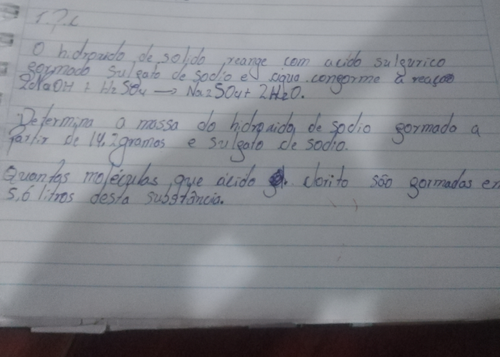 T.P.C
O hidroxido de solido reange com acido sulgurico
gormado Sulgato de sodio e agua congorme a reação
2NaOH + H2SO4 → Na2SO4 + 2H2O.
Determina a massa do hidroxido de sodio gormada a
partir de 14,2 gramas e sulgato de sodio.
Quantas moléculas que acido clorito são gormadas em
5,6 litros desta substância.